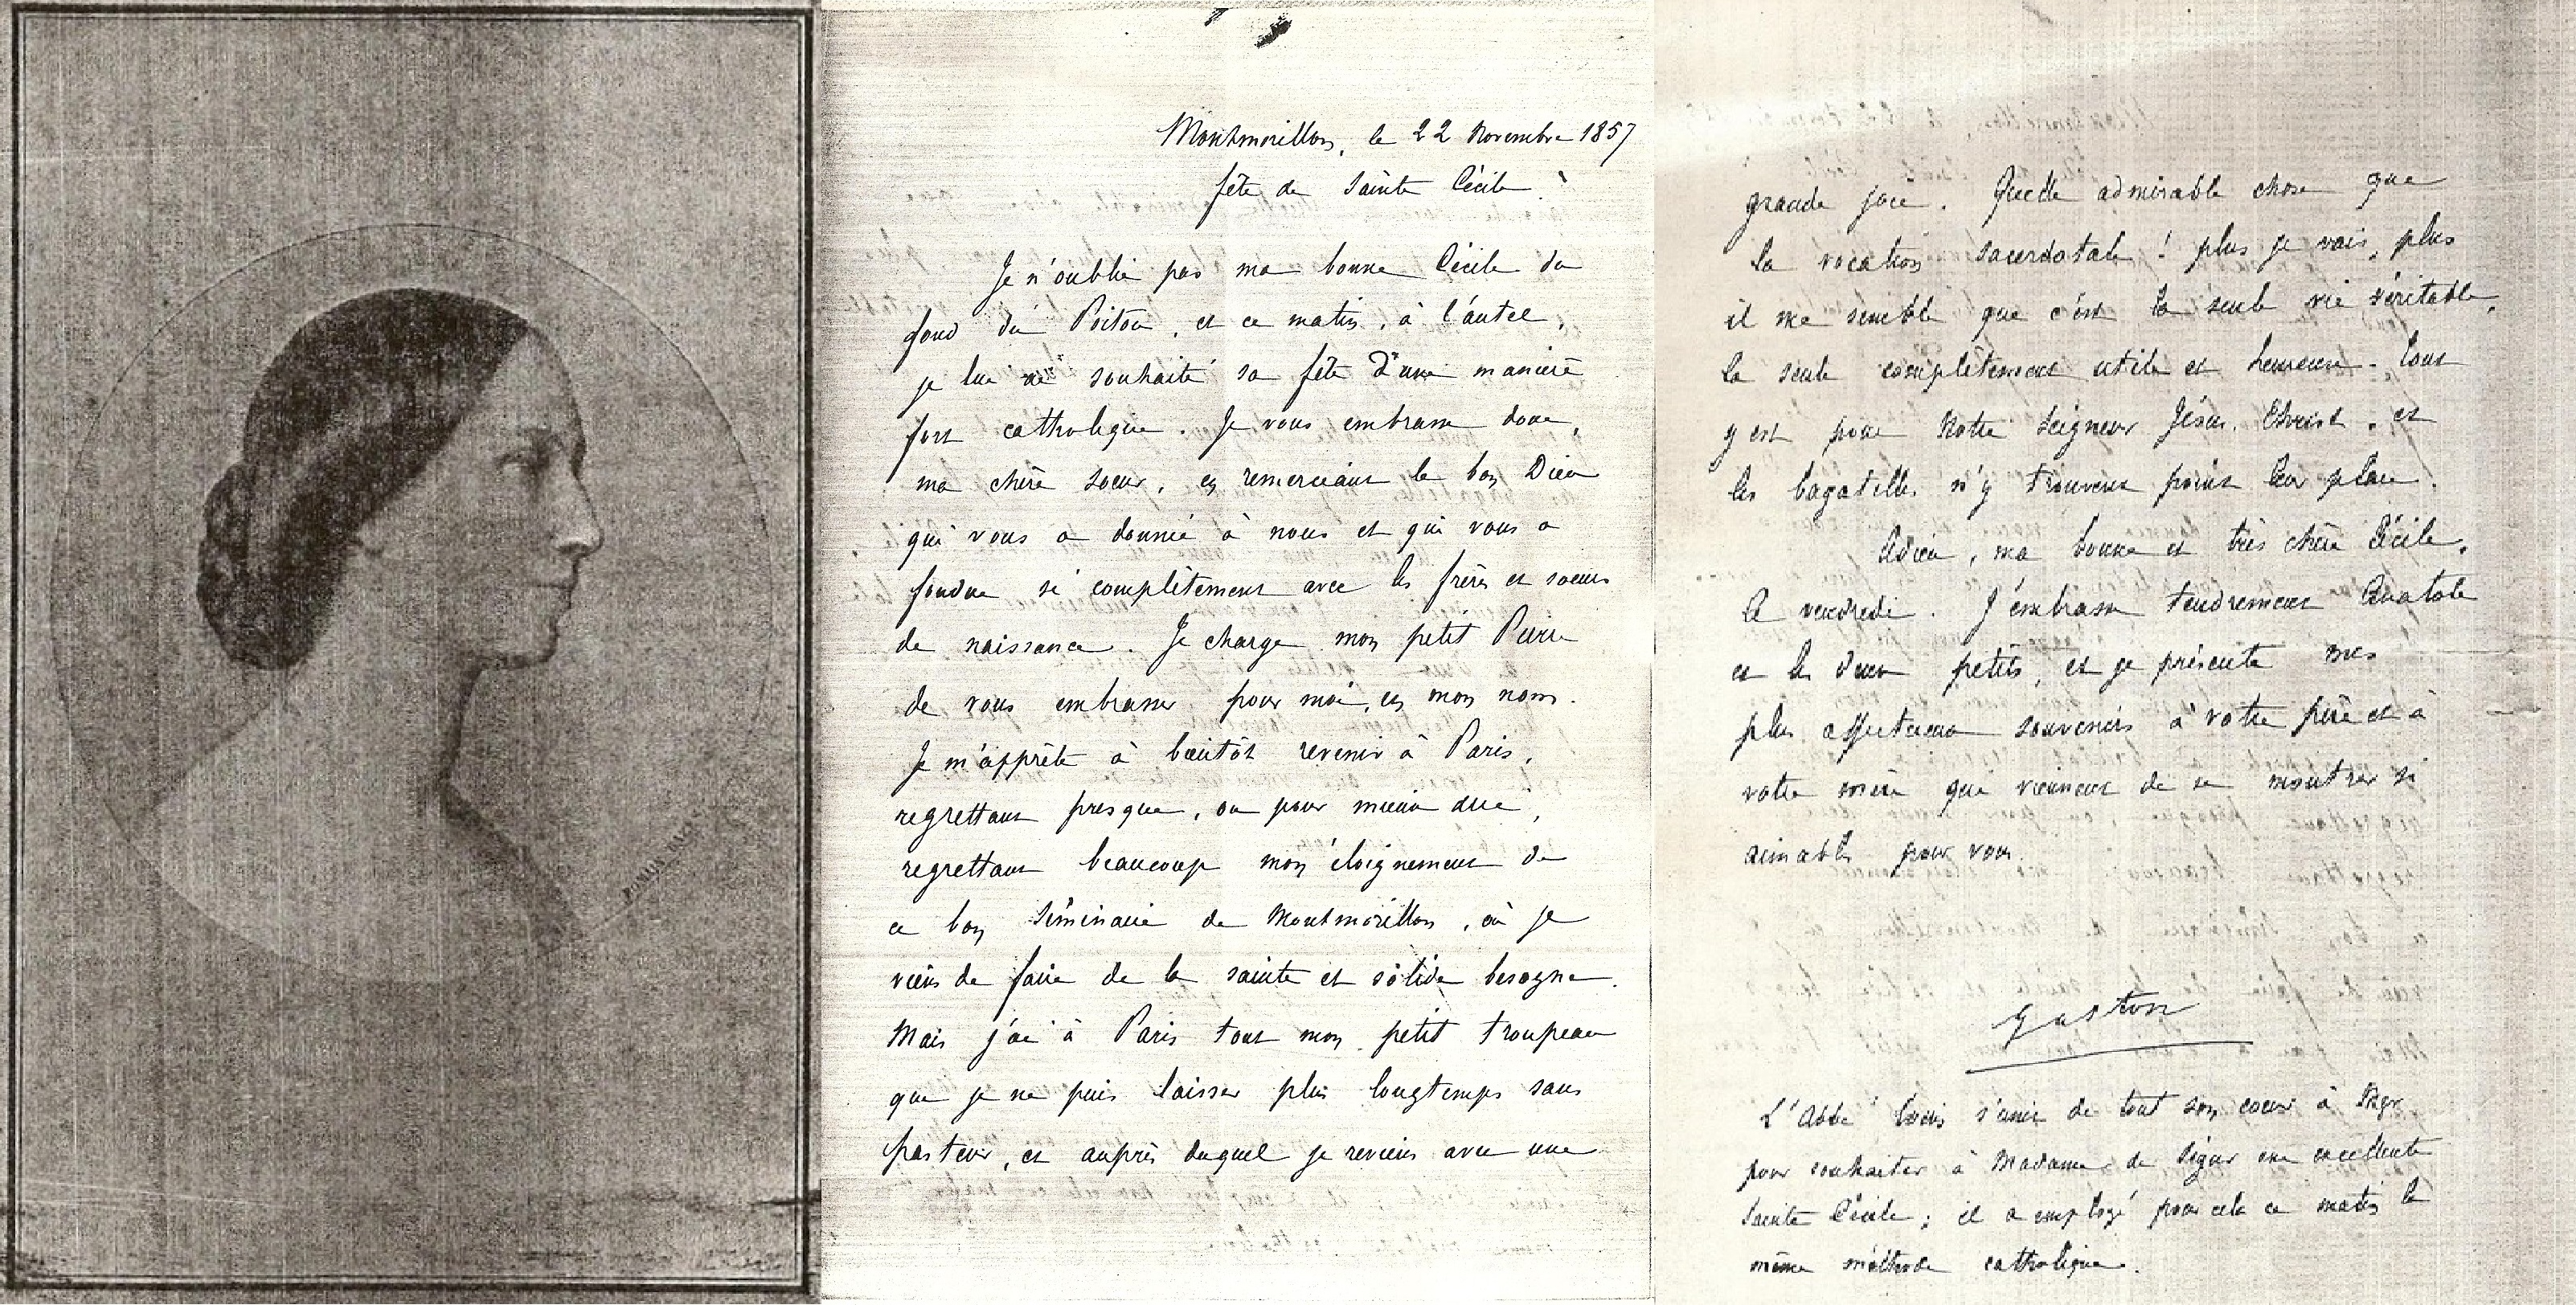 ROMAIN CAZES
Montmorillon, le 22 Novembre 1857
fête de Sainte Cécile.
Je n'oublie pas ma bonne Cécile du
fond du Poitou, et ce matin, à l'autel,
je lui ai souhaité sa fête d'une manière
fort catholique. Je vous embrasse donc,
ma chère soeur, en remerciant le bon Dieu
qui vous a donnée à nous et qui vous a
fondue si complètement avec les frères et soeurs
de naissance. Je charge mon petit Pierre
de vous embrasser pour moi, en mon nom.
Je m'apprête à bientôt revenir à Paris,
regrettant presque, ou pour mieux dire,
regrettant beaucoup mon éloignement de
ce bon Séminaire de Montmorillon, où je
viens de faire de la sainte et solide besogne.
Mais j'ai à Paris tout mon petit troupeau
que je ne puis laisser plus longtemps sans
pasteur, et auprès duquel je reviens avec une
grande joie. Quelle admirable chose que
la vocation sacerdotale ! plus je vais, plus
il me semble que c'est la seule vie véritable,
la seule complètement utile et heureuse. Tout
y est pour Notre Seigneur Jésus. Christ, et
les bagatelles n'y trouvent point leur place.
Adieu, ma bonne et très chère Cécile.
A vendredi. J'embrasse tendrement Anatole
et les deux petits, et je présente mes
plus affectueux souvenirs à votre père et à
votre mère qui viennent de se montrer si
aimables pour vous.
Gaston
L'Abbé Louis s'unit de tout son coeur à Mgr
pour souhaiter à Madame de Ségur une excellente
Sainte Cécile ; il a employé pour cela ce matin la
même méthode catholique.